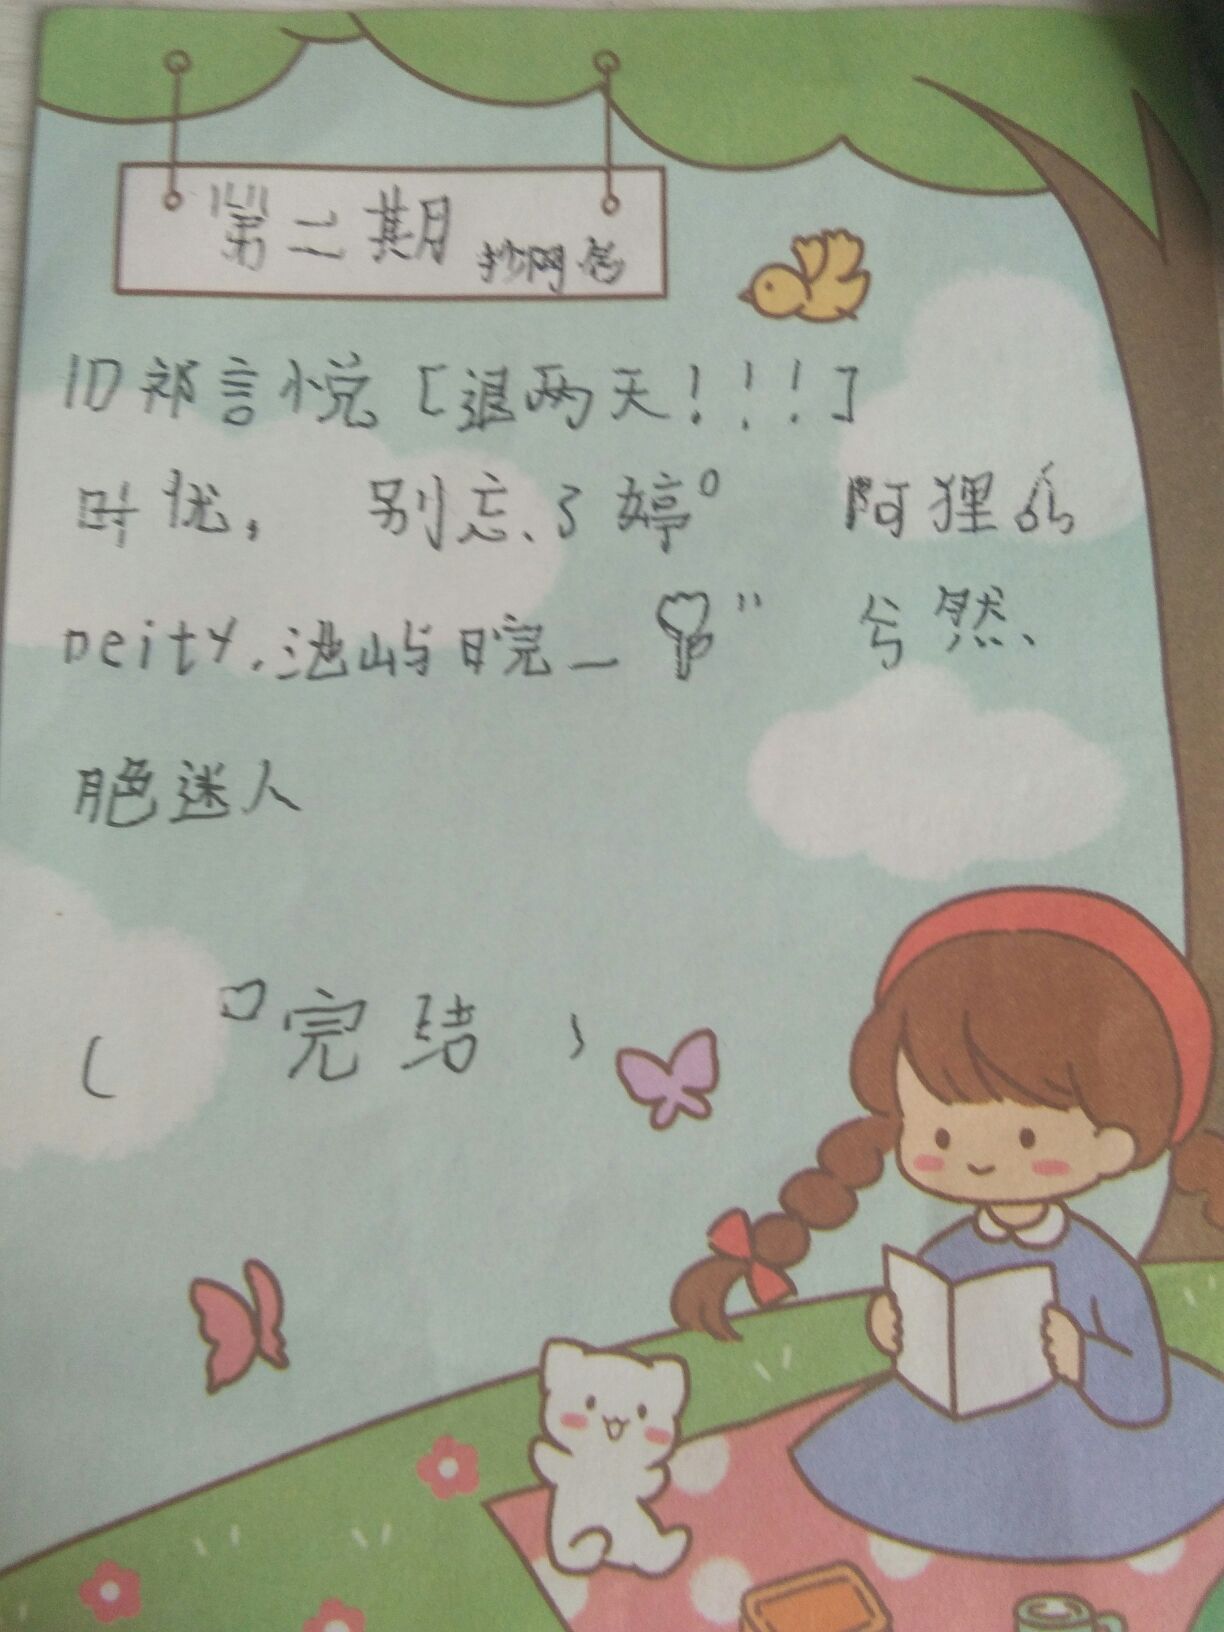 第二期 抄网名
ID祁言悦[退两天!!!]
时忧, 别忘、了婷° 阿狸
Deity.屿晥_ " 兮然、
脃迷人
( 完结 )